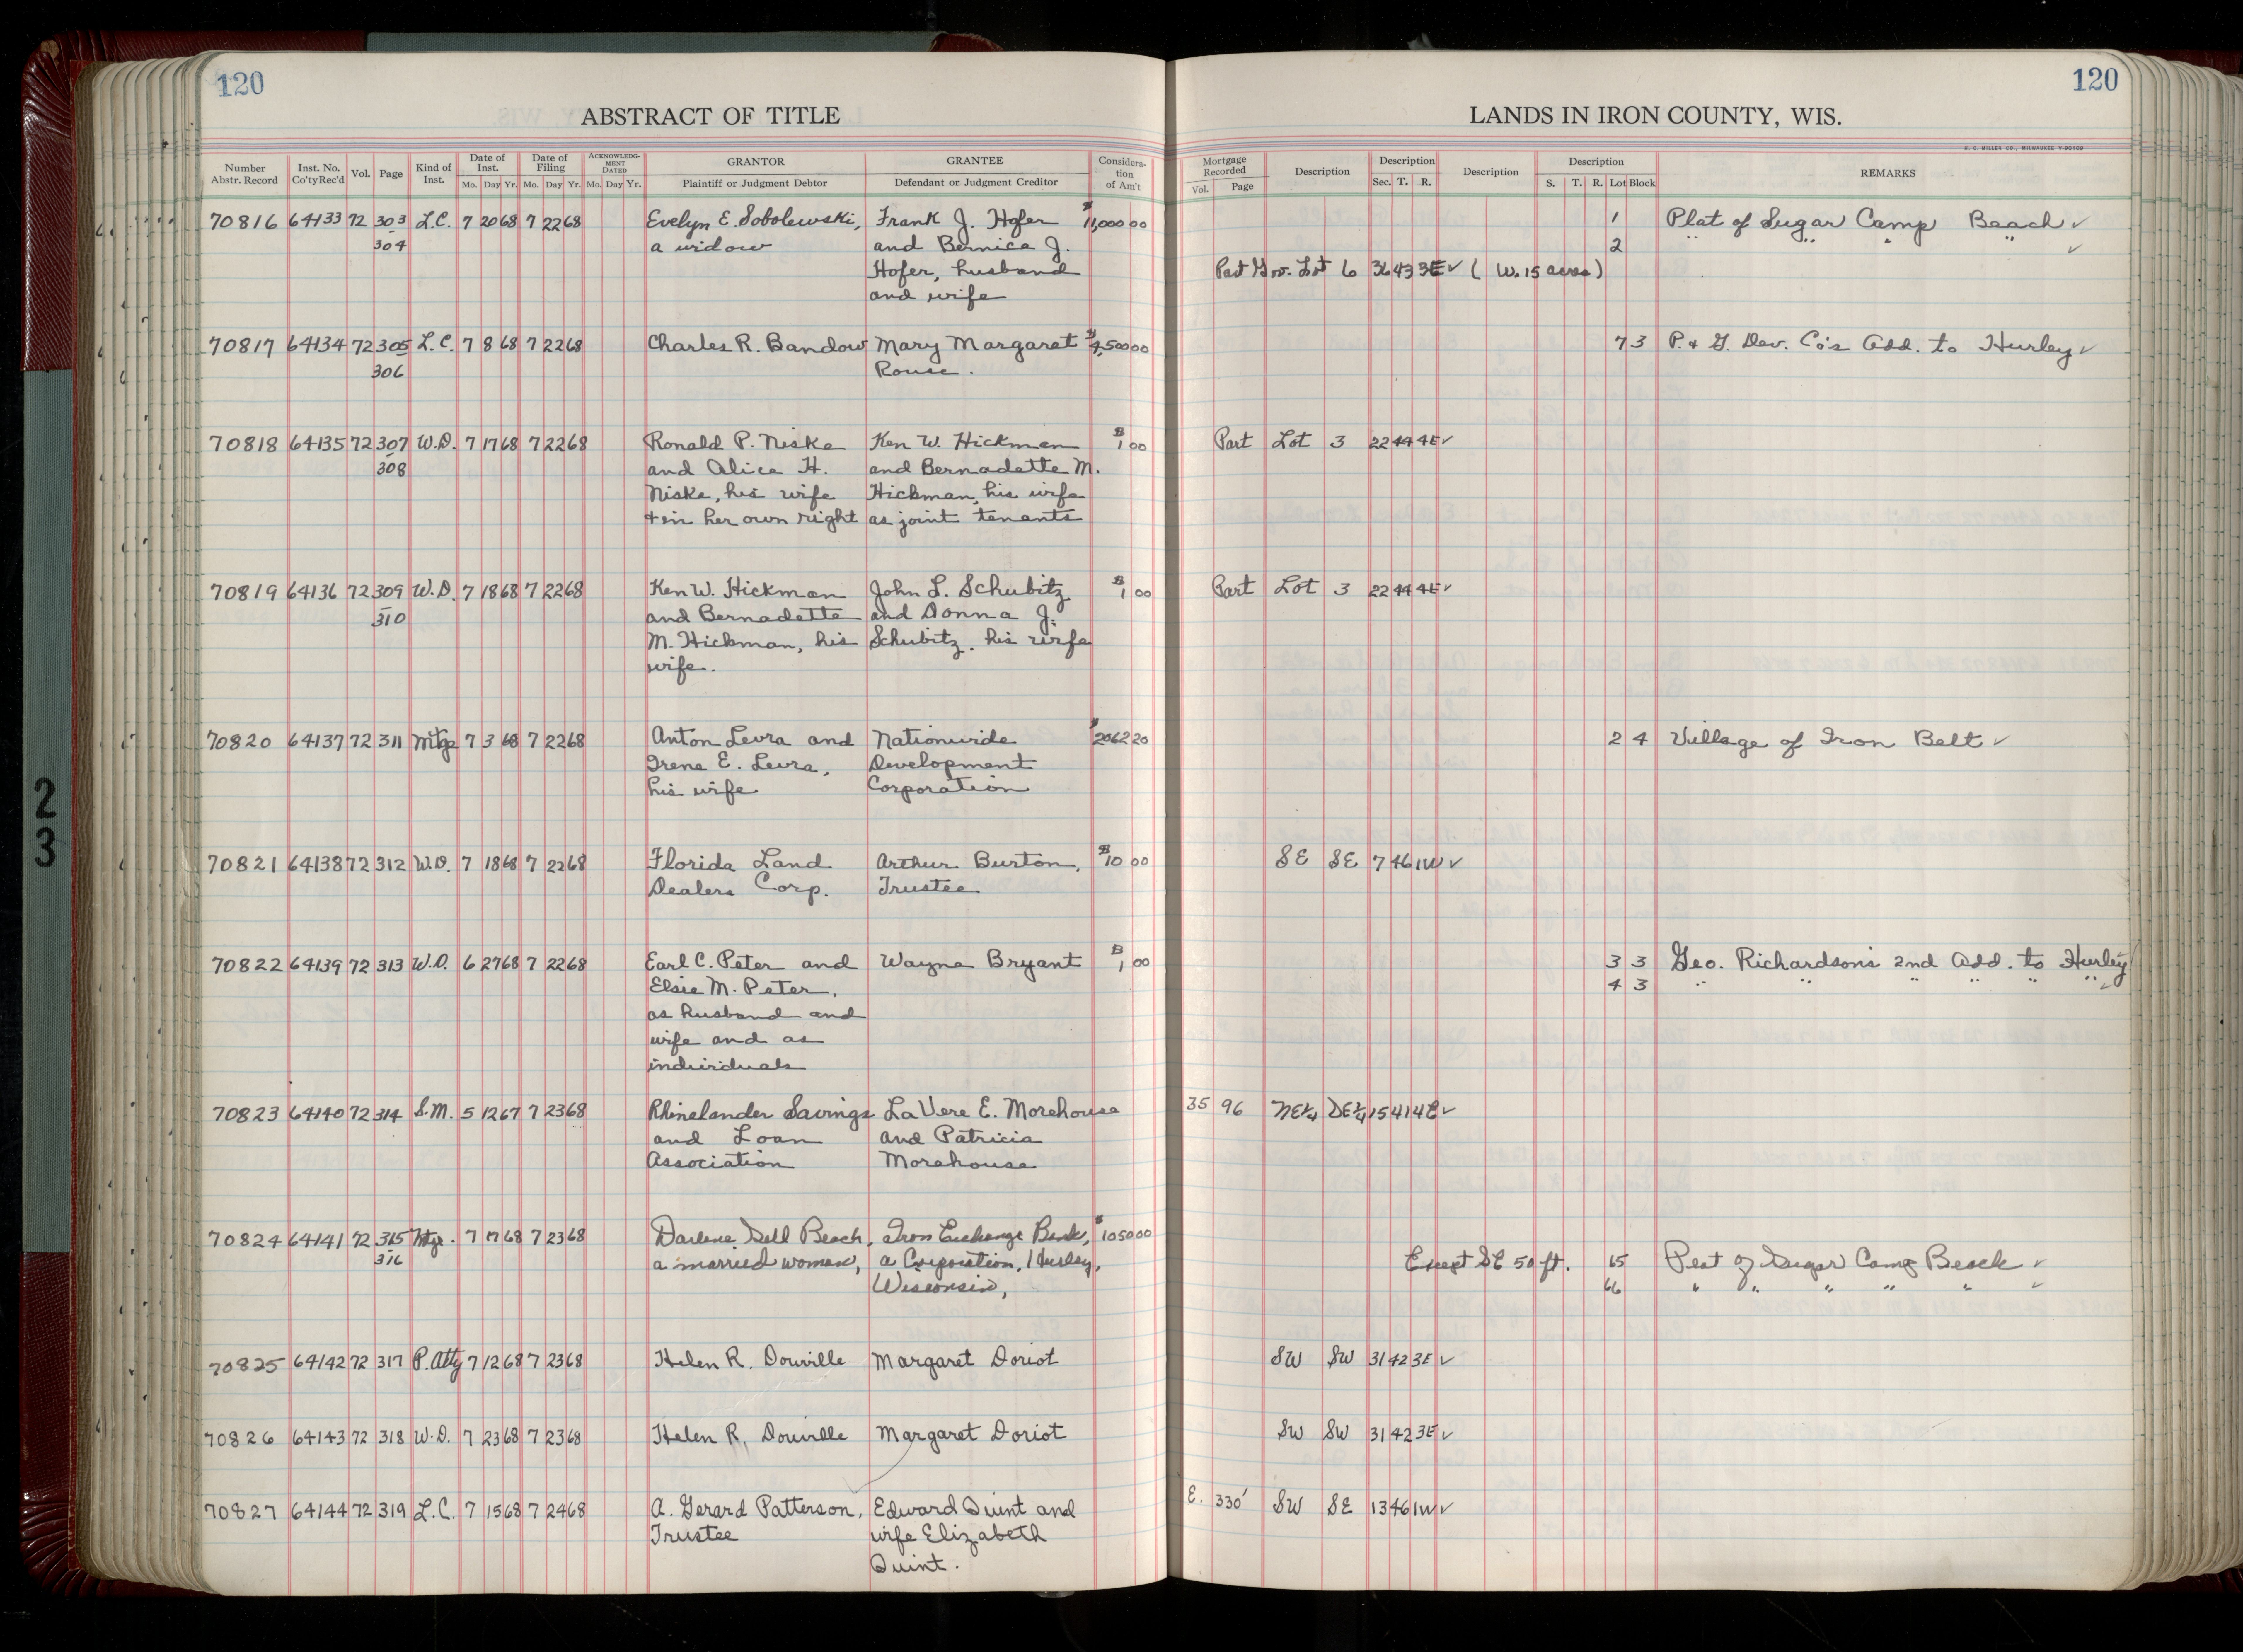 120
120
ABSTRACT OF TITLE
LANDS IN IRON COUNTY, WIS.
Number Abstr. Record | Inst. No. Co'ty Rec'd | Vol. | Page | Kind of Inst. | Date of Inst. Mo. Day Yr. | Date of Filing Mo. Day Yr. | ACKNOWLEDGMENT DATED Mo. Day Yr. | GRANTOR Plaintiff or Judgment Debtor | GRANTEE Defendant or Judgment Creditor | Consideration of Am't | Mortgage Recorded Vol. Page | Description | Description Sec. T. R. | Description | Description S. T. R. Lot Block | REMARKS
70816 64133 72 303 L.C. 7 20 68 7 22 68 Evelyn E. Sobolewski, Frank J. Hofer $11,000 00 1 Plat of Sugar Camp Beach ✓
304 a widow and Bernice J. 2 " " " " ✓
Hofer, husband Part Gov. Lot 6 36 43 3E ✓ ( W. 15 acres )
and wife
70817 64134 72 305 L.C. 7 8 68 7 22 68 Charles R. Bandow Mary Margaret $4,500 00 7 3 P. & G. Dev. Co's Add. to Hurley ✓
306 Rouse.
70818 64135 72 307 W.D. 7 17 68 7 22 68 Ronald P. Niske Ken W. Hickman $1 00 Part Lot 3 22 44 4E ✓
308 and Alice H. and Bernadette M.
Niske, his wife Hickman, his wife
& in her own right as joint tenants
70819 64136 72 309 W.D. 7 18 68 7 22 68 Ken W. Hickman John L. Schubitz $1 00 Part Lot 3 22 44 4E ✓
310 and Bernadette and Donna J.
M. Hickman, his Schubitz, his wife
wife.
70820 64137 72 311 Mtge 7 3 68 7 22 68 Anton Levra and Nationwide $2062 20 2 4 Village of Iron Belt ✓
Irene E. Levra, Development
his wife Corporation
70821 64138 72 312 W.D. 7 18 68 7 22 68 Florida Land Arthur Burton, $10 00 SE SE 7 46 1W ✓
Dealers Corp. Trustee
70822 64139 72 313 W.D. 6 27 68 7 22 68 Earl C. Peter and Wayne Bryant $1 00 3 3 Geo. Richardson's 2nd Add. to Hurley
Elsie M. Peter, 4 3 " " " " " " ✓
as husband and
wife and as
individuals
70823 64140 72 314 S.M. 5 12 67 7 23 68 Rhinelander Savings LaVere E. Morehouse 35 96 NE¼ DE¼ 15 41 4E ✓
and Loan and Patricia
Association Morehouse
70824 64141 72 315 Mtge. 7 17 68 7 23 68 Darlene Sell Beach, Iron Exchange Bank, $1050 00
316 a married woman, a Corporation, Hurley, Except SE 50 ft. 65 Plat of Sugar Camp Beach ✓
Wisconsin, 66 " " " " " ✓
70825 64142 72 317 P. Atty 7 12 68 7 23 68 Helen R. Douville Margaret Doriot SW SW 31 42 3E ✓
70826 64143 72 318 W.D. 7 23 68 7 23 68 Helen R. Douville Margaret Doriot SW SW 31 42 3E ✓
70827 64144 72 319 L.C. 7 15 68 7 24 68 A. Gerard Patterson, Edward Quint and E. 330' SW SE 13 46 1W ✓
Trustee wife Elizabeth
Quint.
2
3